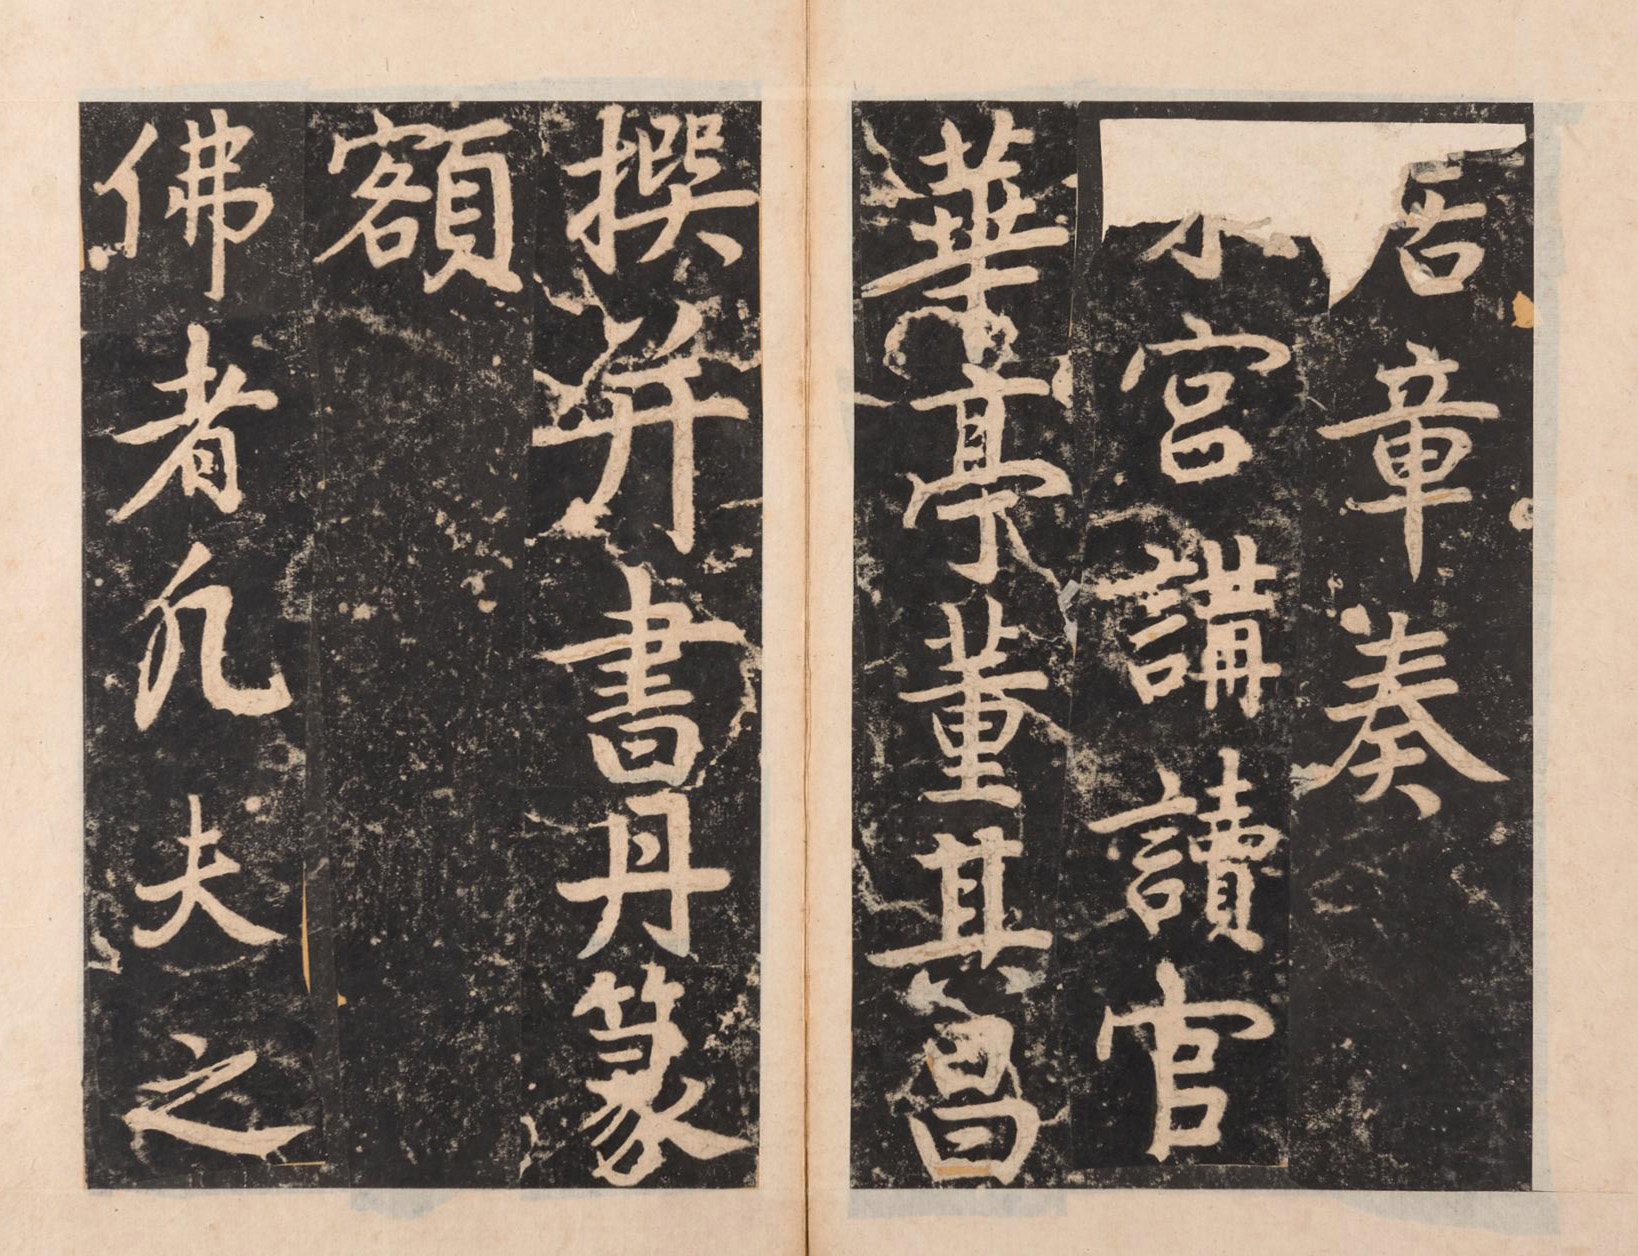 居章奏
宮講讀官
華亭董其昌
撰并書丹篆
額
佛者凡夫之